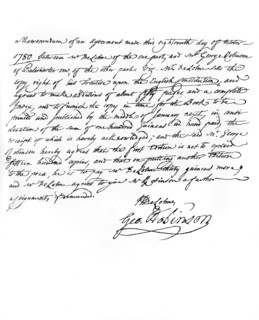 Memorandum of an agreement made this Eighteenth day of October
1780 between Mr De Lolme of the one part, and Mr George Robinson
of Paternoster row of the other part Viz. Mr De Lolme sells the
copy right of his Treatise upon the English Constitution, and
agrees to make additions of about fifty pages and a complete
Index, and to furnish the copy in time for the Book to be
printed and published by the middle of January next, in consi-
deration of the sum of one hundred guineas in hand paid, the
receipt of which is hereby acknowledged, and the said Mr George
Robinson hereby agrees that the first Edition is not to exceed
fifteen hundred copies, and that on putting another Edition
to the press, he is to pay Mr De Lolme thirty guineas more,
and Mr De Lolme agrees to give Mr Robinson a farther
assignment if demanded.
De Lolme
Geo. Robinson